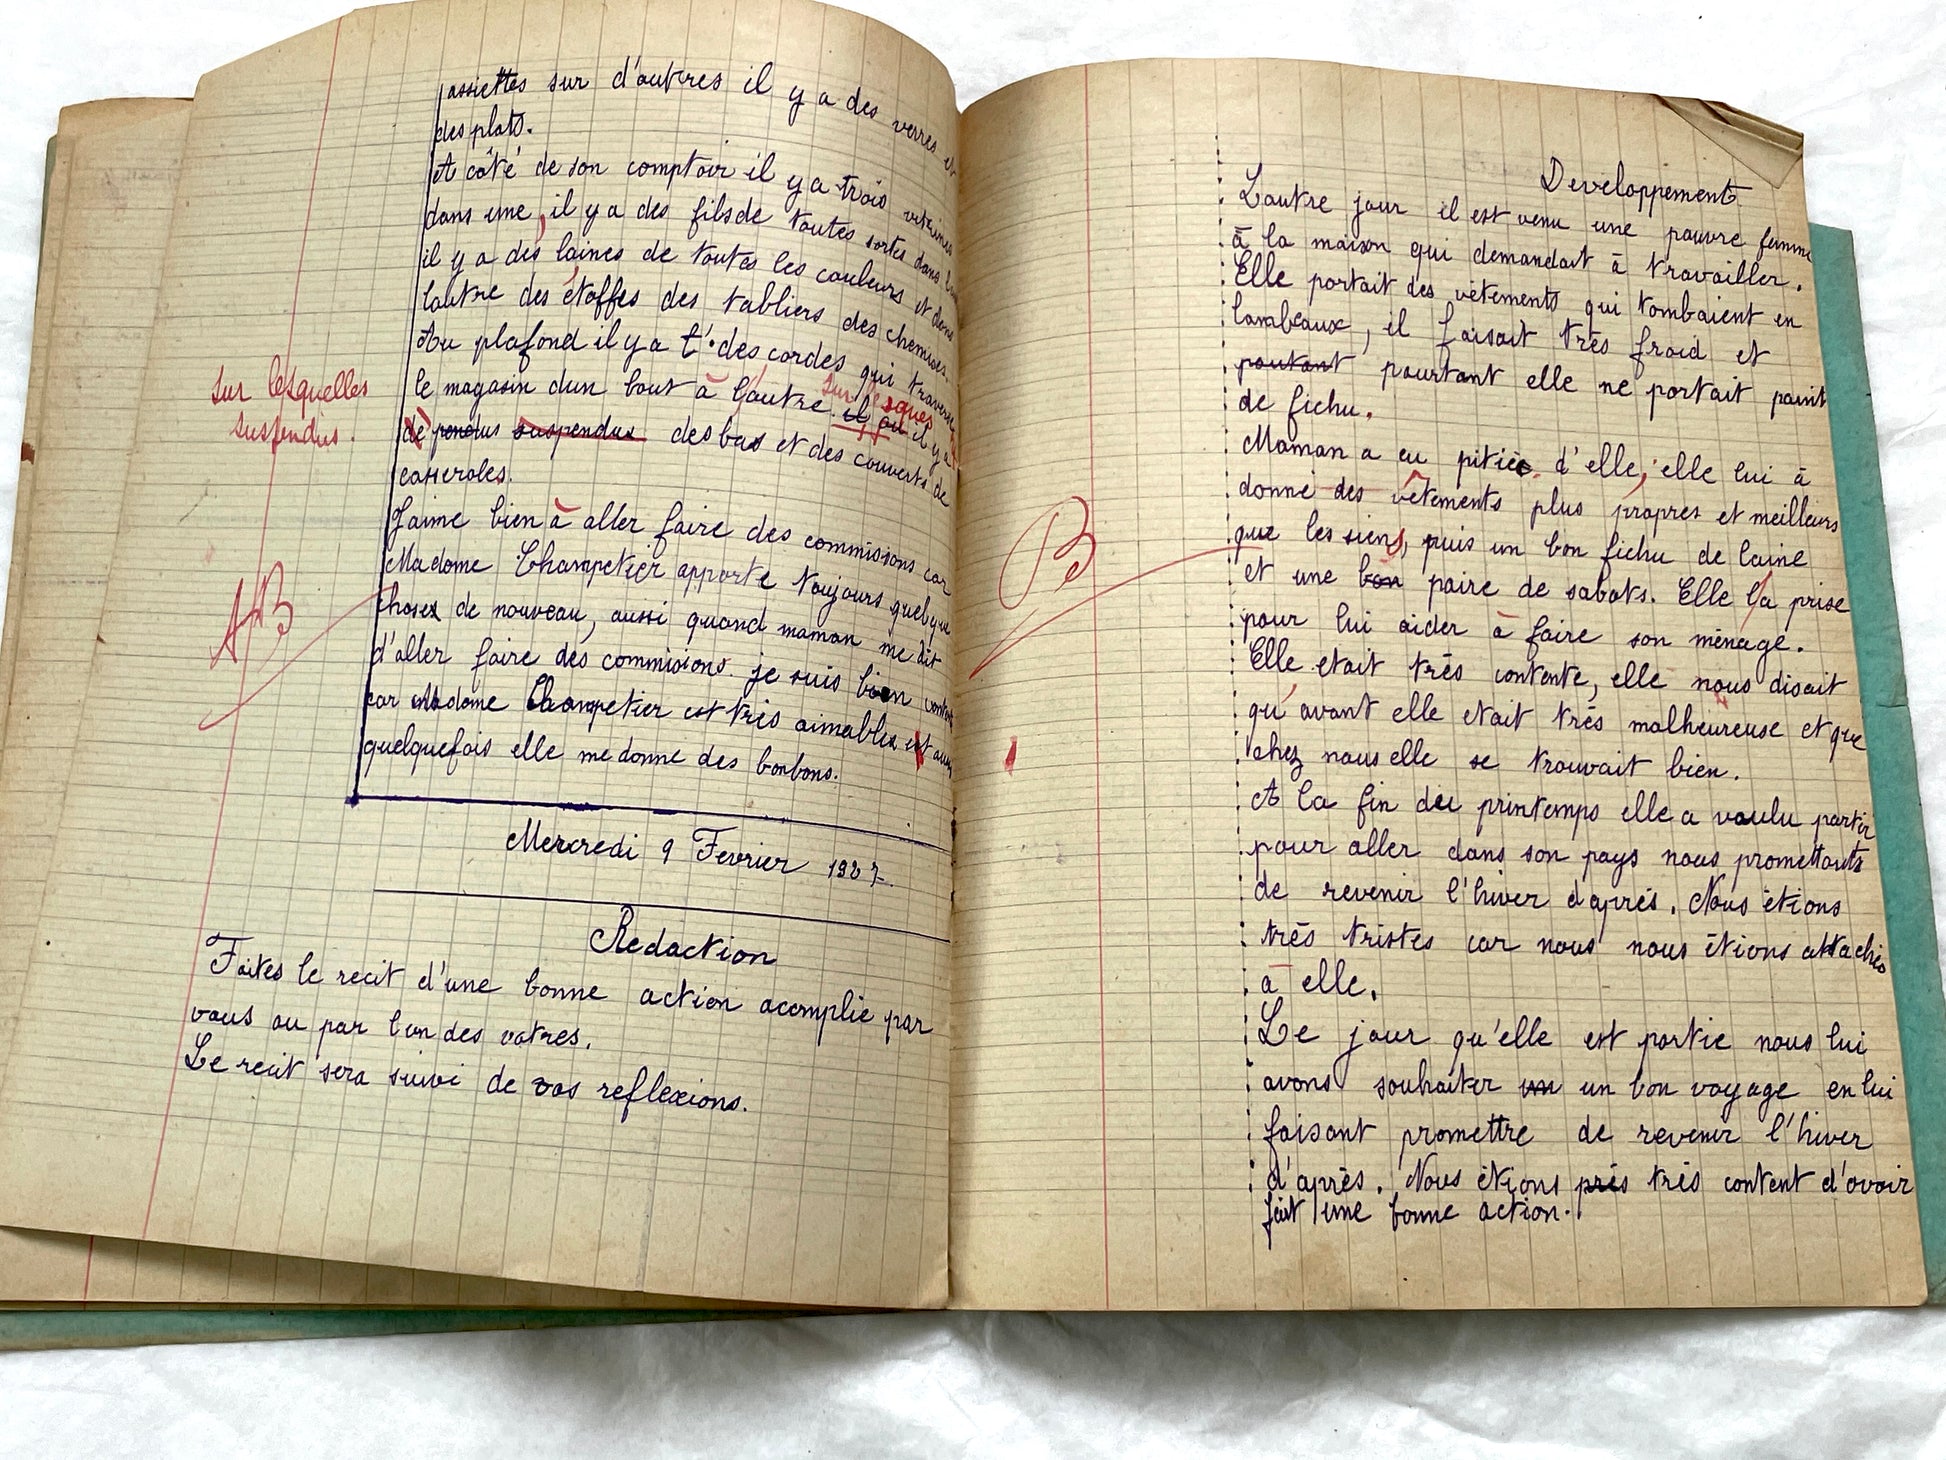 assiettes sur d'autres il y a des verres et
des plats.
A côté de son comptoir il y a trois vitrines
dans une, il y a des fils de toutes sortes dans
il y a des laines de toutes les couleurs et dans
l'autre des étoffes des tabliers des chemises.
Au plafond il y a t' des cordes qui traverse
le magasin d'un bout à l'autre. il ou il y a
sur lesquelles
sur lesquelles
suspendus.
de pendus suspendus des bas et des couverts de
casseroles.
J'aime bien à aller faire des commissions car
Madame Champetier apporte toujours quelque
choses de nouveau, aussi quand maman me dit
d'aller faire des commisions je suis bien content
car Madame Champetier est très aimables et
quelquefois elle me donne des bonbons.
AB
Mercredi 9 Fevrier 1927.
Redaction
Faites le recit d'une bonne action acomplie par
vous ou par l'un des votres.
Le recit sera suivi de vos reflexions.
Developpement
L'autre jour il est venu une pauvre femme
à la maison qui demandait à travailler.
Elle portait des vêtements qui tombaient en
lambeaux, il faisait très froid et
poutant pourtant elle ne portait point
de fichu.
Maman a eu pitiée d'elle, elle lui à
donné des vêtements plus propres et meilleurs
que les siens, puis un bon fichu de laine
et une bon paire de sabots. Elle l'a prise
pour lui aider à faire son ménage.
Elle etait très contente, elle nous disait
qu'avant elle etait très malheureuse et que
chez nous elle se trouvait bien.
A la fin du printemps elle a voulu partir
pour aller dans son pays nous promettants
de revenir l'hiver d'après. Nous étions
très tristes car nous nous étions attachés
à elle.
Le jour qu'elle est partie nous lui
avons souhaiter un un bon voyage en lui
faisant promettre de revenir l'hiver
d'après. Nous étions près très content d'avoir
fait une bonne action.
B